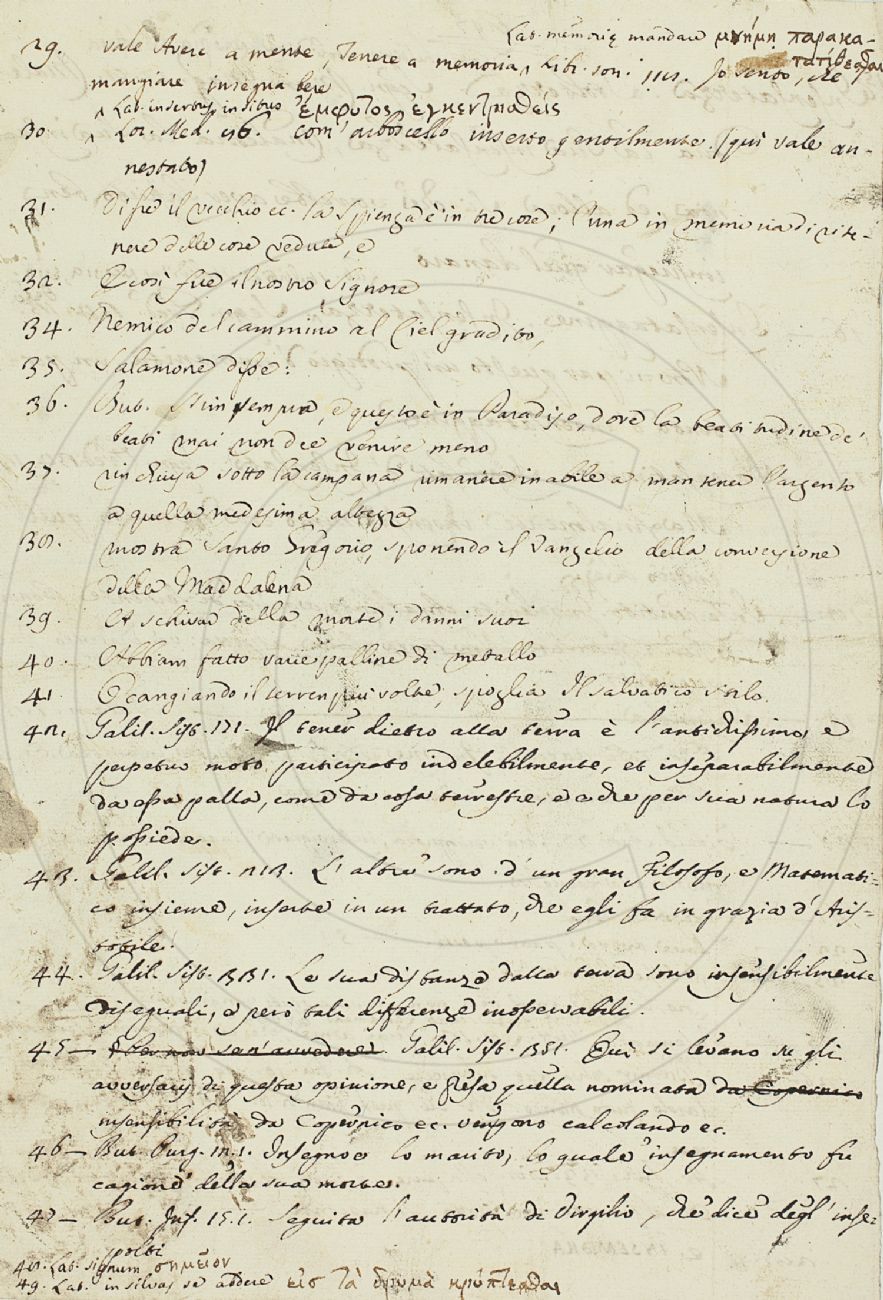 Lat. memorię mandare μνήμῃ παρακα-
τατίθεσθαι
29. vale Avere a mente, Tenere a memoria ʌ Libr. son. Io sento, che
mangiare insegna bere
ʌ Lat. insertus, insitus ἔμφυτος ἐγκεντρισθείς
30 ʌ Lor. Med. com' arboscello inserto gentilmente. (qui vale an-
nestato)
31. Disse il vecchio ec. la spienza è in tre cose; l'una in memoria di rite-
nere delle cose vedute, e
32. E così fue il nostro Signore
34. Nemico del cammino al Ciel gradito,
35. Salamone disse:
36. But. S'insempra, e questo è in Paradiso, dove la beatitudine de'
beati mai non dee venire meno
37. rinchiusa sotto la campana rimanere inabile a mantener l'argento
a quella medesima altezza
38. mostra Santo Gregorio, sponendo il Vangelio della conversione
della Maddalena
39. A schivar della morte i danni suoi
40. Abbiam fatto varie palline di metallo
41 E cangiando il terren più volte, spoglia Il salvatico stilo.
42. Galil. Sist. 171. Il tener dietro alla terra è l'antichissimo, e
perpetuo moto, participato indelebilmente, et inseparabilmente
da essa palla, come da cosa terrestre, e che per sua natura lo
possiede.
43. Galil. Sist. 213. L'altre sono d'un gran Filosofo, e Matemati-
co insieme, inserte in un trattato, che egli fa in grazia d'Aris-
totile.
44. Galil. Sist. 381. Le sua distanze dalla terra sono insensibilmente
diseguali, e però tali differenze inosservabili.
45 — E lor non sen'avvedere. Galil. Sist. 351. Qui si levano su gli
avversarj di questa opinione, e presa quella nominata da Copernico
insensibilità da Copernico ec. vengono calcolando ec.
46 — But. Purg. 12. 1. Insegnoe lo marito, lo quale insegnamento fu
cagione della sua morte.
47 — But. Inf. 15. 1. Seguita l'autorità di Virgilio, che dice degl'inse-
polti
48. Lat. signum σημεῖον
49. Lat. in silvas se abdere εἰσ τὰ δρυμὰ κρύπτεσθαι